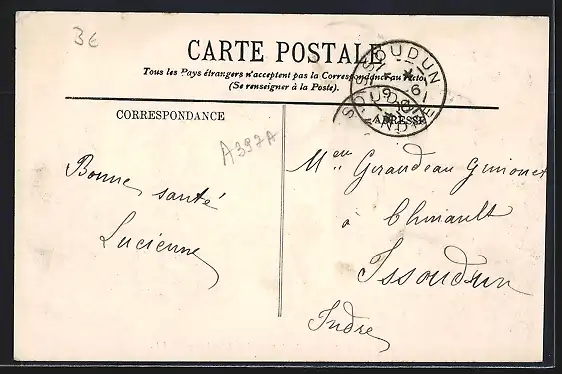 3€
CARTE POSTALE
Tous les Pays étrangers n'acceptent pas la Correspondance au Recto
(Se renseigner à la Poste).
ISSOUDUN
INDRE
CORRESPONDANCE
ADRESSE
A397A
Bonne santé
Lucienne
Giraudeau
à
Issoudun
Indre